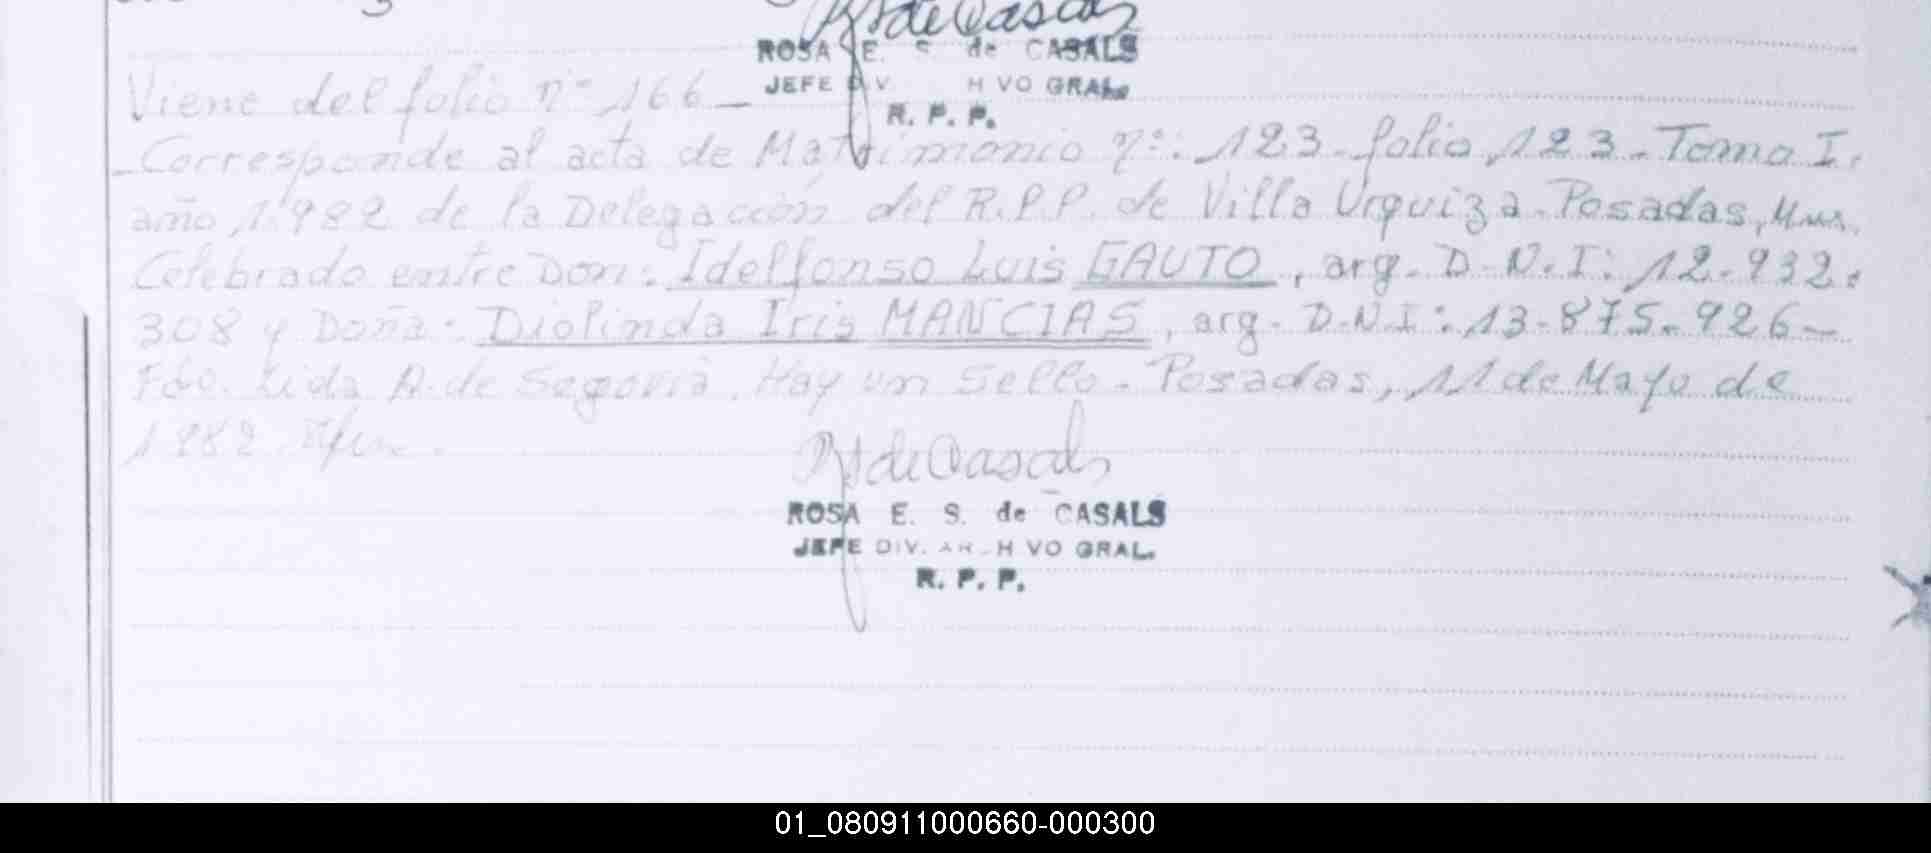 Rs de Casals
ROSA E. S. de CASALS
JEFE DIV HVO GRAL.
R. P. P.
Viene del folio nº 166 —
Corresponde al acta de Matrimonio nº: 123 - folio 123 - Tomo I.
año 1.982 de la Delegación del R.P.P. de Villa Urquiza - Posadas, Mnes.
Celebrado entre Don: Idelfonso Luis GAUTO, arg. D.N.I: 12.932.
308 y Doña: Diolinda Iris MANCIAS, arg. D.N.I: 13.875.926 —
Fdo. Lida A. de Segovia. Hay un Sello. Posadas, 11 de Mayo de
1982
Rs de Casals
ROSA E. S. de CASALS
JEFE DIV. ARCHIVO GRAL.
R. P. P.
01_080911000660-000300